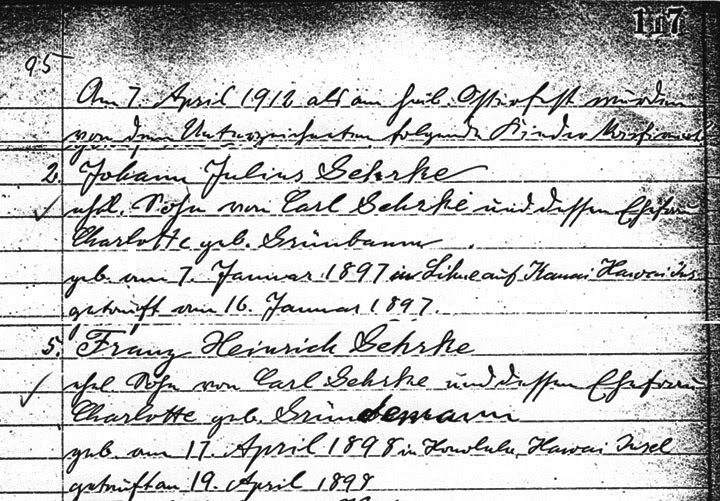 117
95
Am 7. April 1912 als am heil. Osterfest wurden
von dem Unterzeichneten folgende Kinder konfirmiert
2. Johann Julius Gehrke
✓ ehel. Sohn von Carl Gehrke und dessen Ehefrau
Charlotte geb. Grünbaum
geb. am 7. Januar 1897 in Lihue auf Kauai Hawai Ins.
getauft am 16. Januar 1897.
5. Franz Heinrich Gehrke
✓ ehel. Sohn von Carl Gehrke und dessen Ehefrau
Charlotte geb. Gründemann
geb. am 17. April 1898 in Honolulu, Hawai Insel
getauft am 19. April 1898